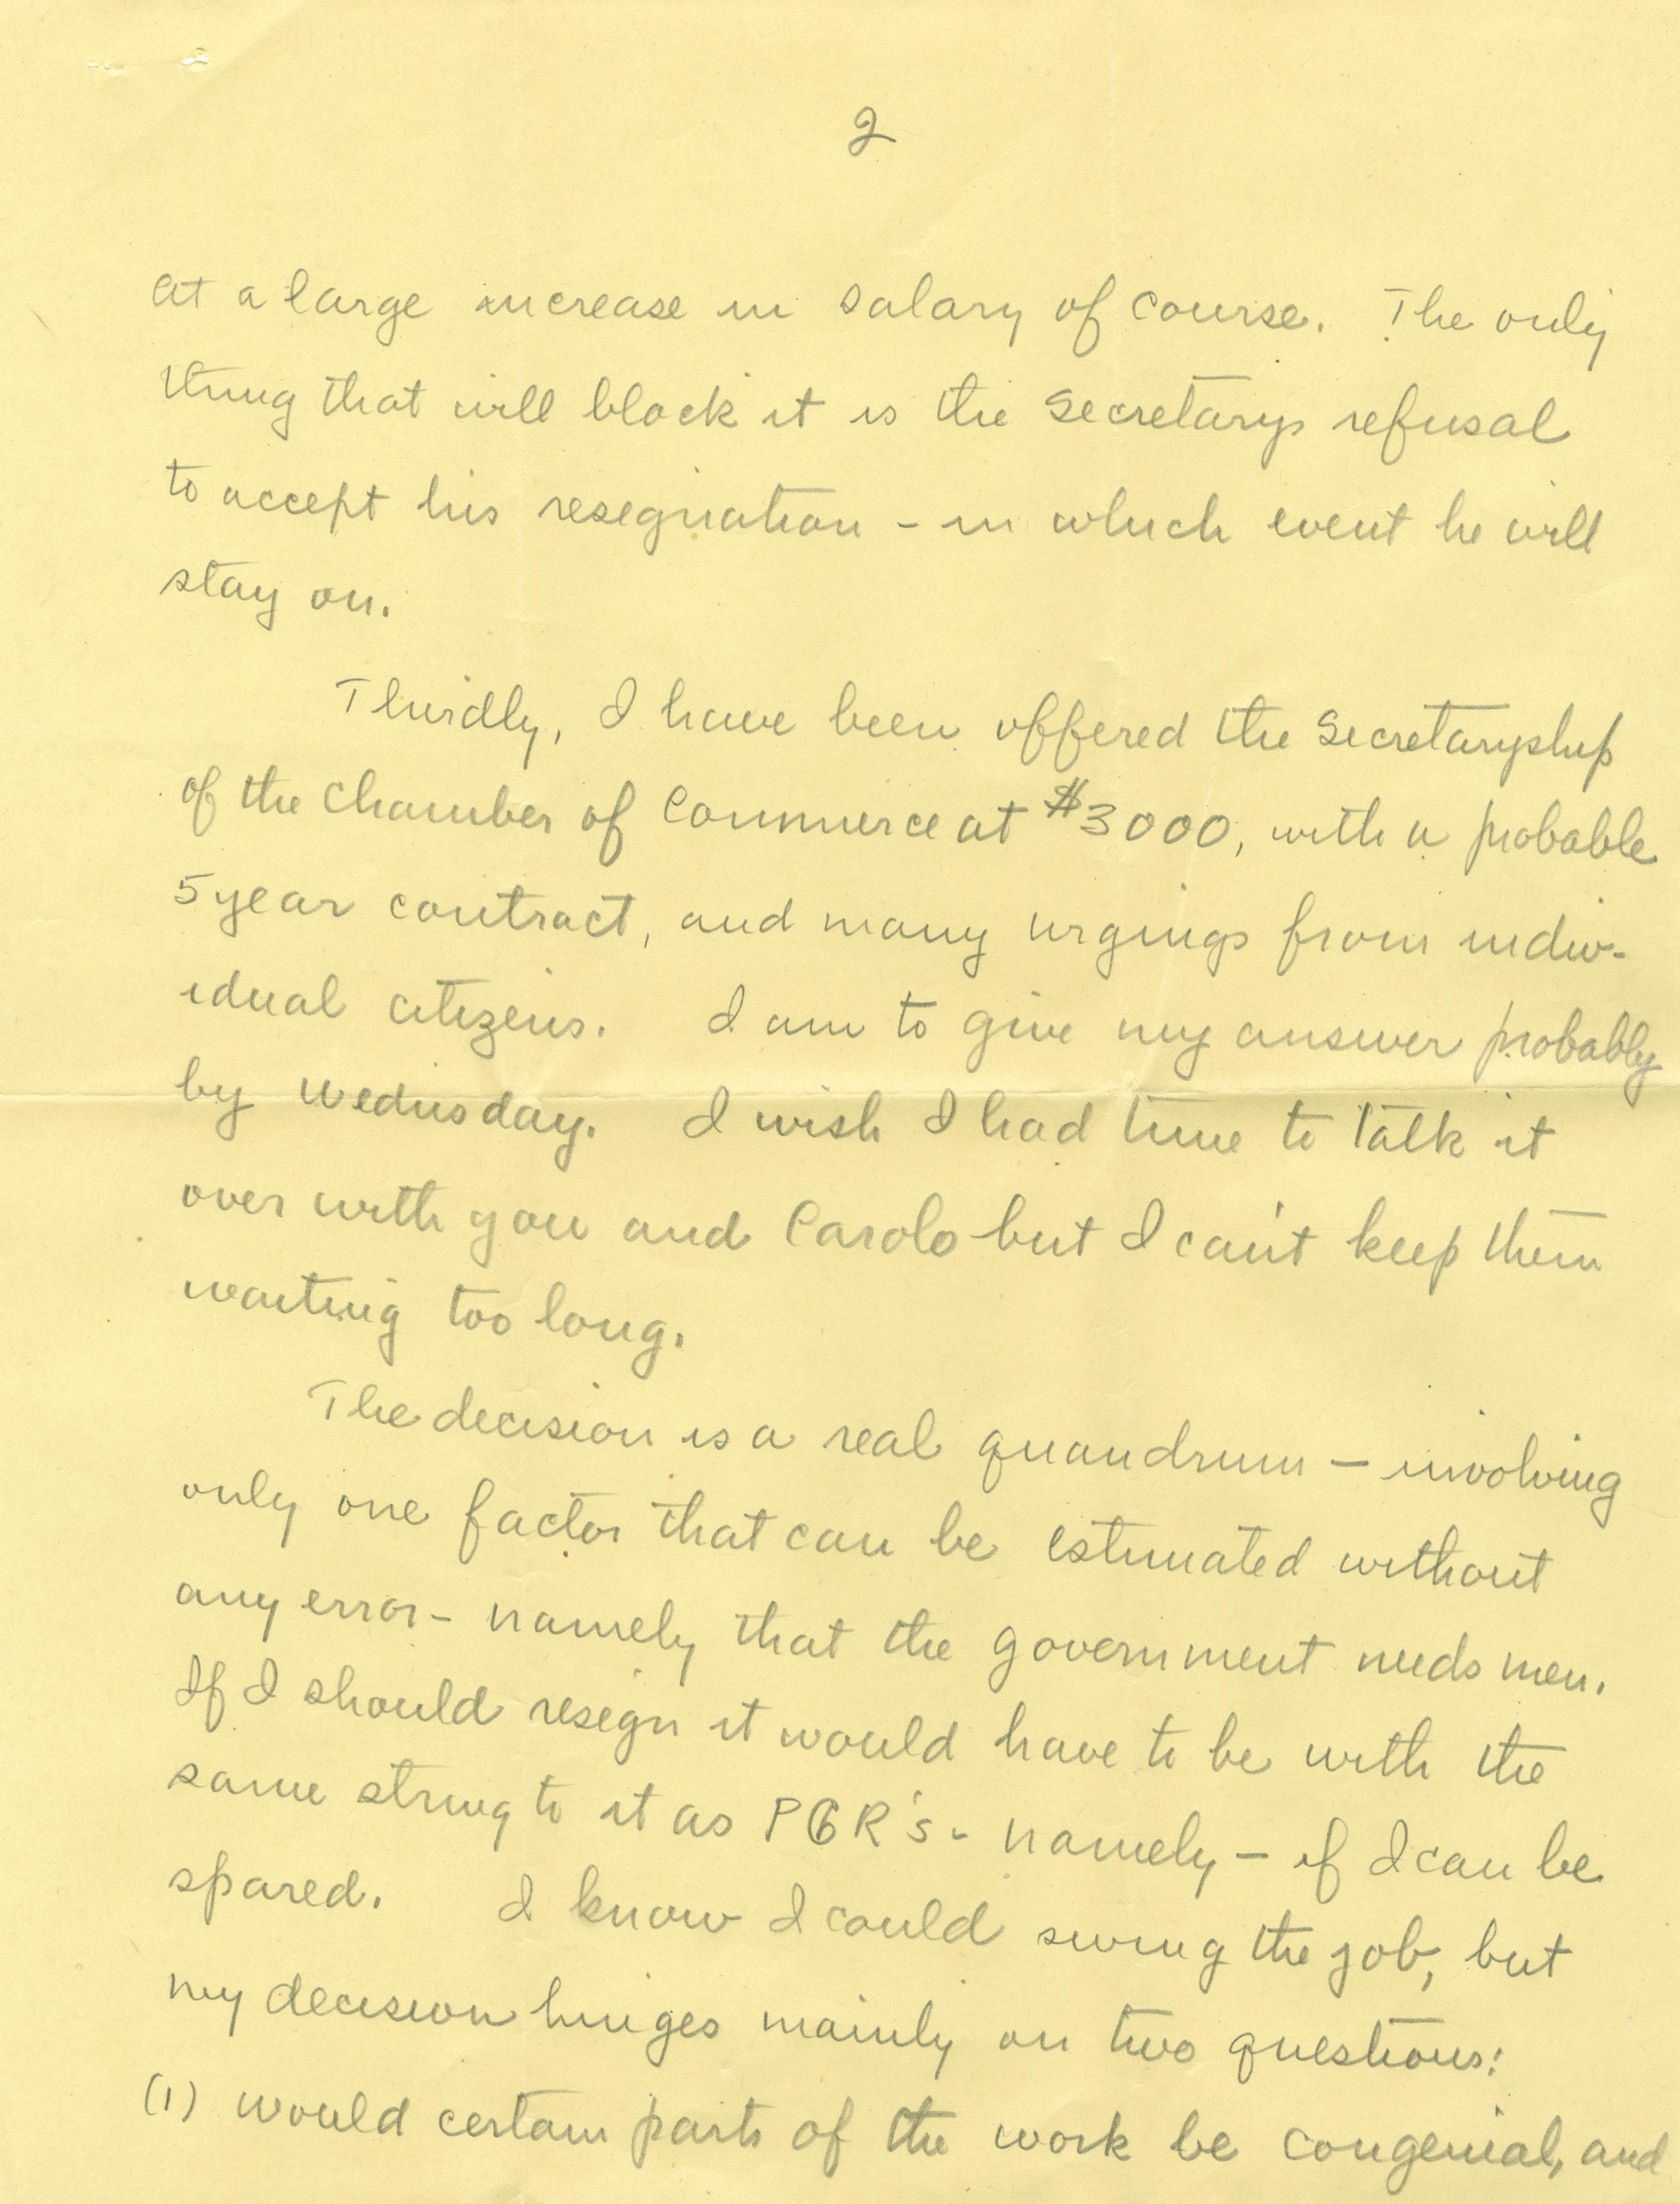 2
at a large increase in salary of course. The only
thing that will block it is the Secretarys refusal
to accept his resignation - in which event he will
stay on.
Thirdly, I have been offered the Secretaryship
of the Chamber of Commerce at $3000, with a probable
5 year contract, and many urgings from indiv-
idual citizens. I am to give my answer probably
by Wednesday. I wish I had time to talk it
over with you and Carolo but I can't keep them
waiting too long.
The decision is a real quandrum - involving
only one factor that can be estimated without
any error - namely that the government needs men.
If I should resign it would have to be with the
same string to it as PGR's - namely - if I can be
spared. I know I could swing the job, but
my decision hinges mainly on two questions:
(1) would certain parts of the work be congenial, and